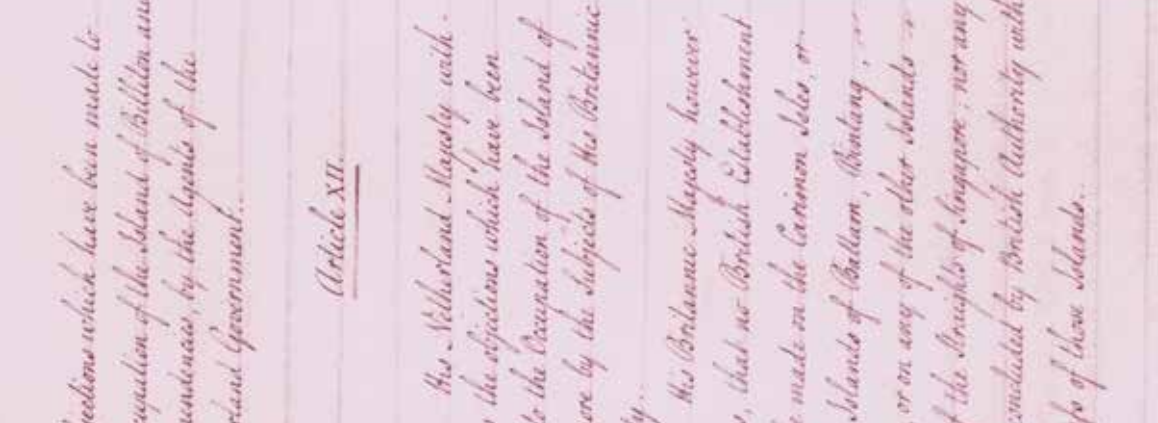 jections which have been made to
cupation of the Island of Billiton and
pendencies, by the Agents of the
rland Government.
Article XII.
His Netherland Majesty with-
the objections which have been
to the Occupation of the Island of
ore by the Subjects of His Britannic
ty.
His Britannic Majesty however
s, that no British Establishment
e made on the Carimon Isles, or
Islands of Battam, Bintang,
or on any of the other Islands
f the Straights of Singapore; nor any
concluded by British Authority with
fs of those Islands.